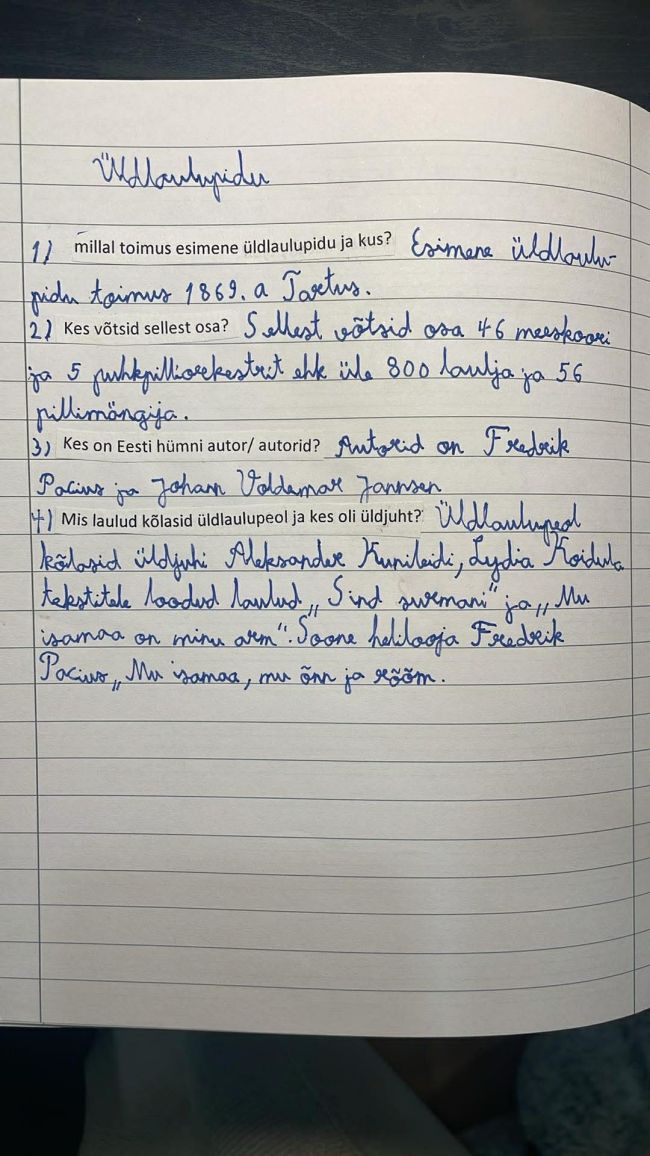 Üldlaulupidu
1) millal toimus esimene üldlaulupidu ja kus? Esimene üldlaulu-
pidu toimus 1869. a Tartus.
2) Kes võtsid sellest osa? Sellest võtsid osa 46 meeskoori
ja 5 puhkpilliorekestrit ehk üle 800 laulja ja 56
pillimängija.
3) Kes on Eesti hümni autor/ autorid? Autorid on Fredrik
Pacius ja Johann Voldemar Jannsen
4) Mis laulud kõlasid üldlaulupeol ja kes oli üldjuht? Üldlaulupeol
kõlasid üldjuhi Aleksander Kunileidi, Lydia Koidula
tekstitele loodud laulud „Sind surmani" ja „Mu
isamaa on minu arm". Soone helilooja Fredrik
Pacius „Mu isamaa, mu õnn ja rõõm.